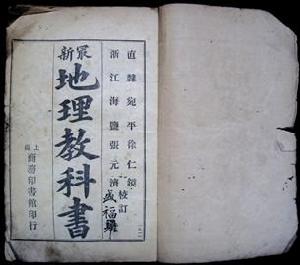 最新
地理教科書
直隸宛平徐仁鏡
浙江海鹽張元濟
校訂
上海商務印書館印行